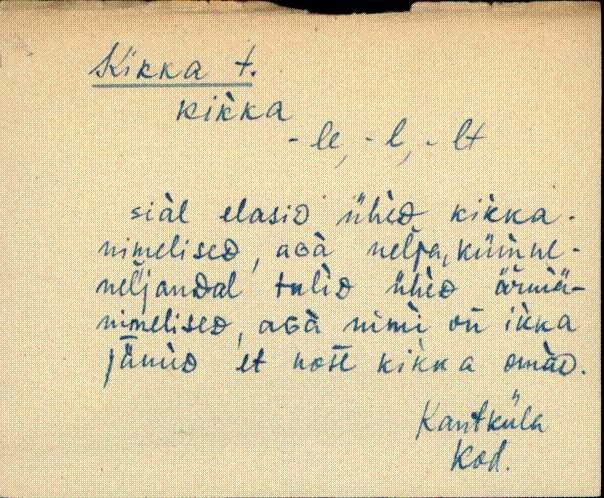 Kikka t.
kìkka
-le, -l, -lt
siàl elasiD ühèD kìkka-
nimeliseD, aGà nelja,küinne-
neljandal tuliD ühèD ärmä-
nimeliseD, aGà nimi oñ ìkka
jänùD et nost kìkka omàD.
Kantküla
Kod.